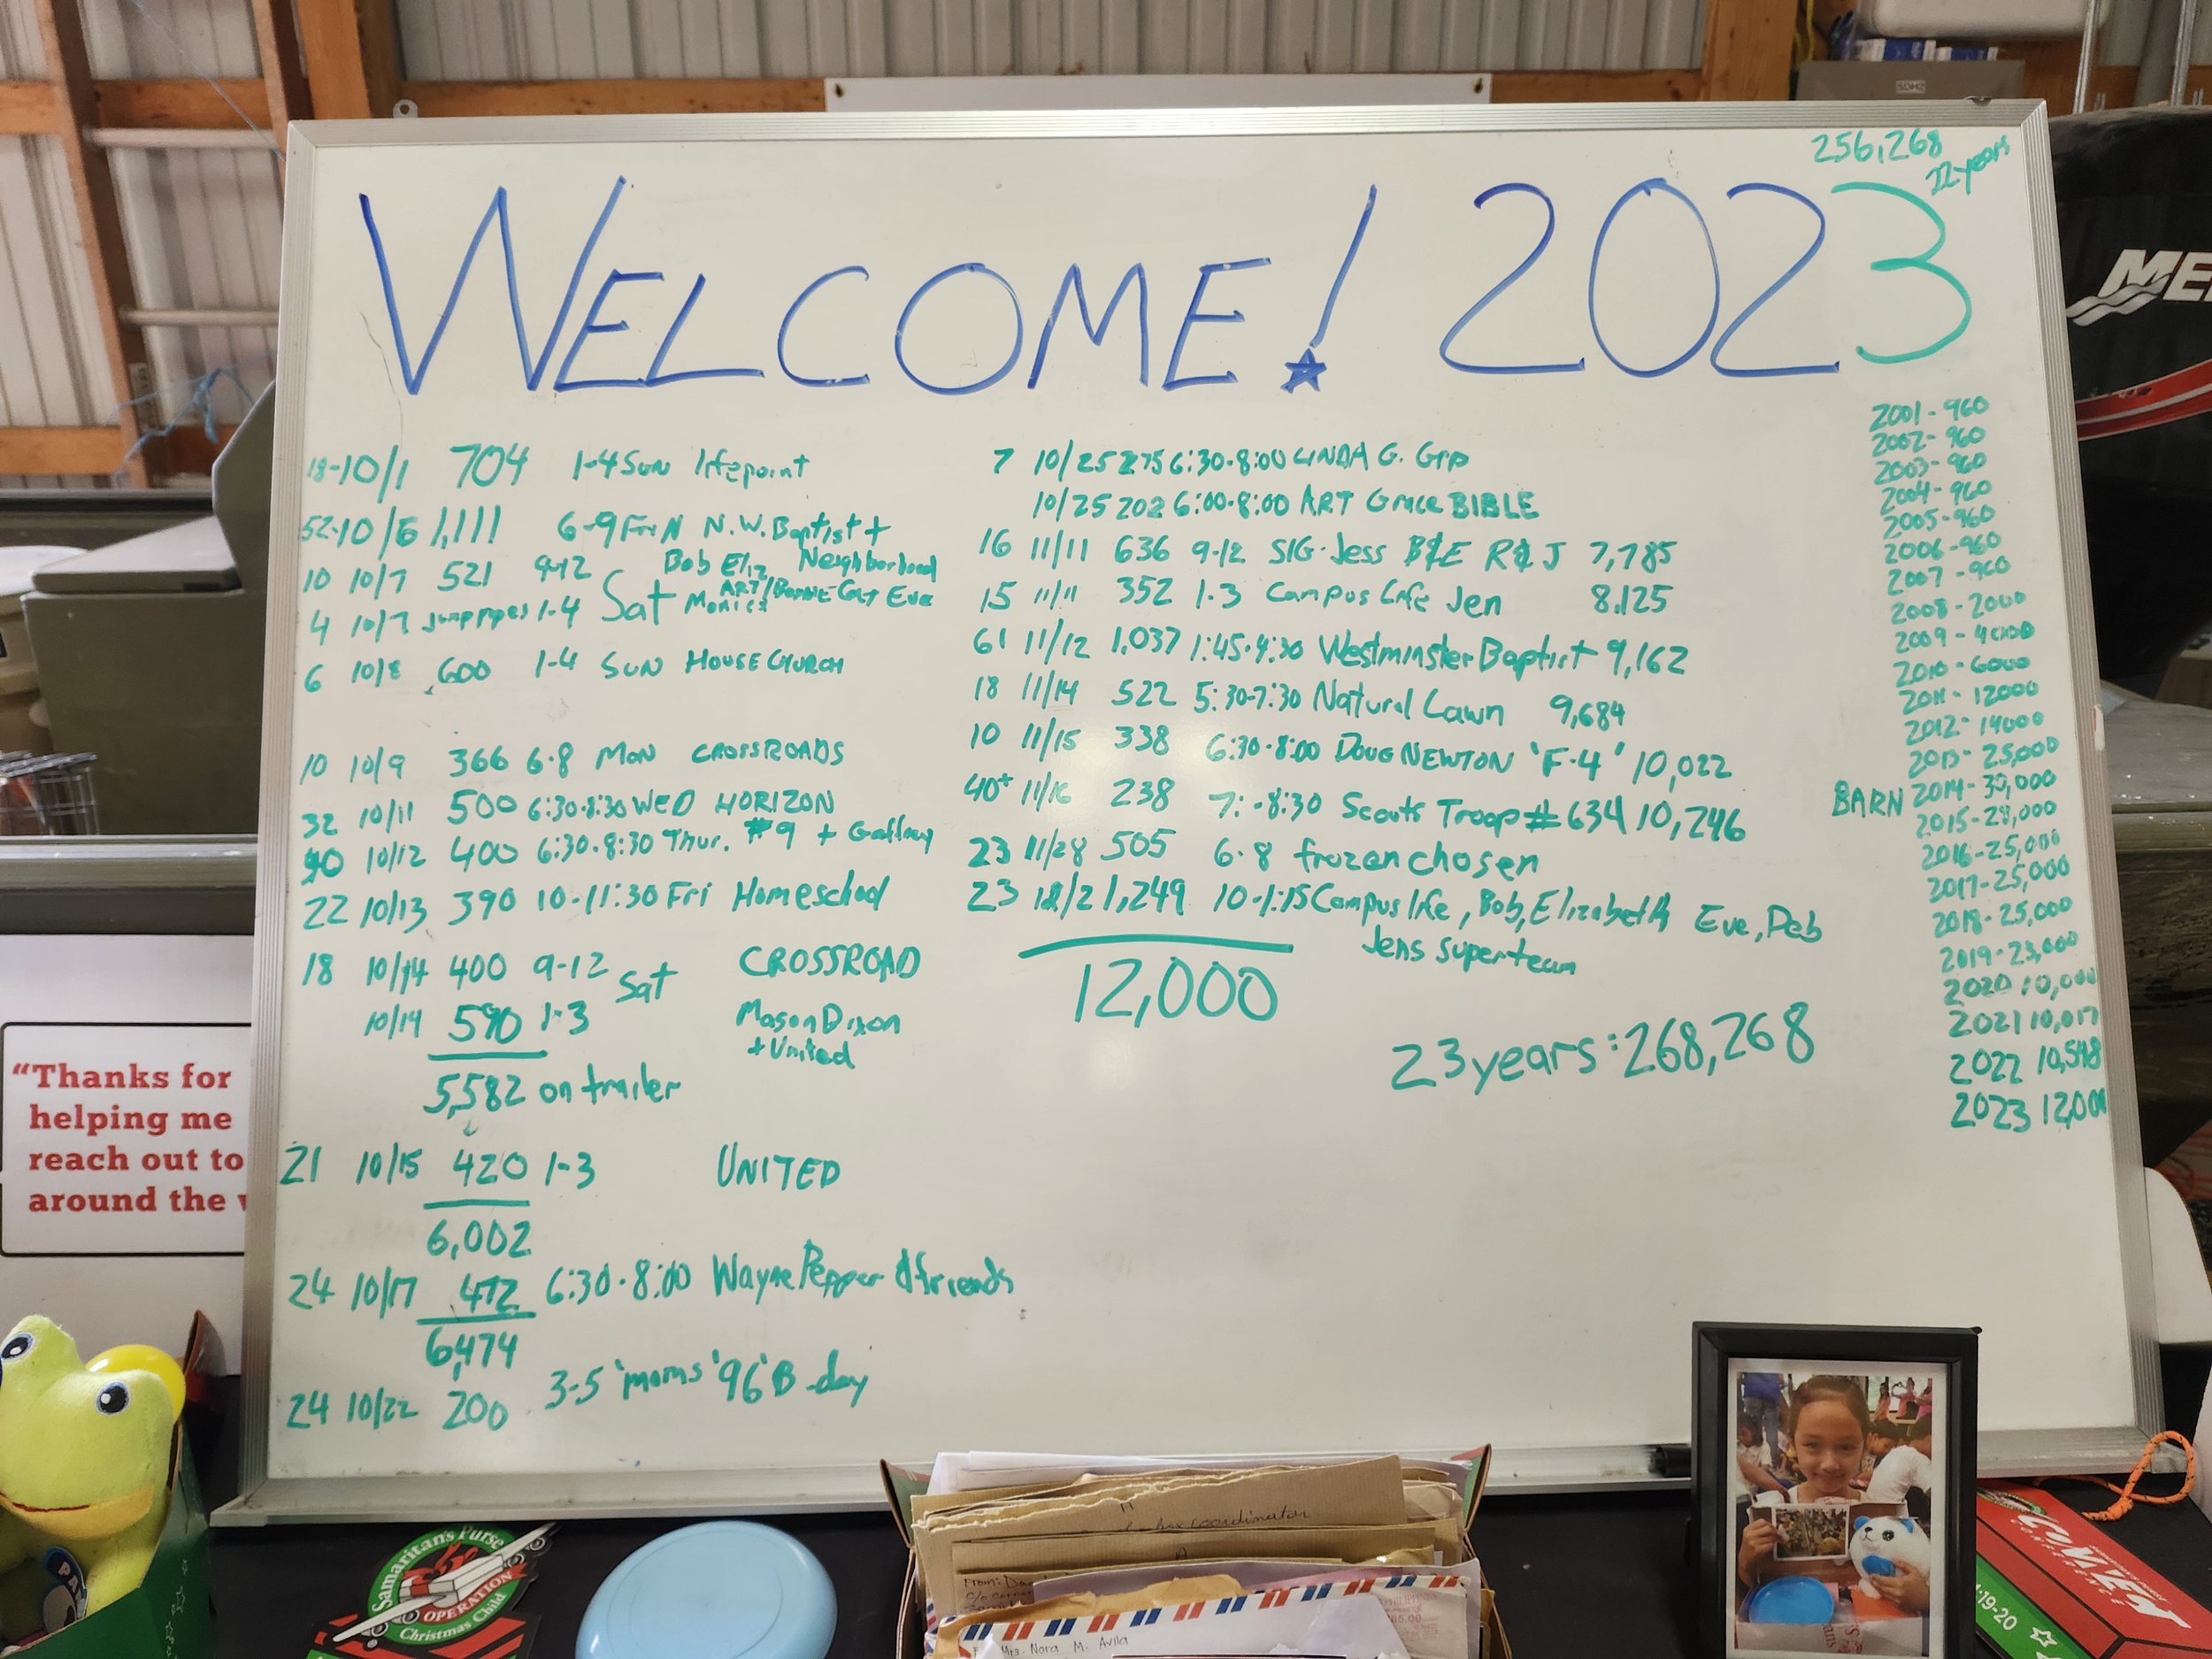 256,268
22 years
WELCOME! 2023
18-10/1 704 1-4 SUN lifepoint
52-10/6 1,111 6-9 Fri N N.W. Baptist +
Neighborhood
10 10/7 521 9-12 Bob Eliz
ART/ Eve
4 10/7 1-4 Sat Monica
6 10/8 600 1-4 SUN HOUSE CHURCH
10 10/9 366 6-8 MON CROSSROADS
32 10/11 500 6:30-8:30 WED HORIZON
90 10/12 400 6:30-8:30 Thur. #9 +
22 10/13 390 10-11:30 Fri Homeschool
18 10/14 400 9-12 Sat CROSSROAD
10/14 590 1-3 Mason Dixon
+ United
5,582 on trailer
21 10/15 420 1-3 UNITED
6,002
24 10/17 472 6:30-8:00 Wayne Pepper & friends
6,474
24 10/22 200 3-5 'moms' '96' B-day
7 10/25 275 6:30-8:00 LINDA G. Grp
10/25 202 6:00-8:00 ART Grace BIBLE
16 11/11 636 9-12 SIG-Jess B&E R&J 7,785
15 11/11 352 1-3 Campus Life Jen 8,125
61 11/12 1,037 1:45-4:30 Westminster Baptist 9,162
18 11/14 522 5:30-7:30 Natural Lawn 9,684
10 11/15 338 6:30-8:00 DOUG NEWTON 'F-4' 10,022
40+ 11/16 238 7:-8:30 Scouts Troop #634 10,246
23 11/28 505 6-8 frozen chosen
23 12/2 1,249 10-1:15 Campus life, Bob, Elizabeth Eve, Deb
Jens superteam
12,000
23 years: 268,268
2001-960
2002-960
2003-960
2004-960
2005-960
2006-960
2007-960
2008-2000
2009-4000
2010-6000
2011-12000
2012-14000
2013-25,000
BARN 2014-30,000
2015-28,000
2016-25,000
2017-25,000
2018-25,000
2019-23,000
2020 10,000
2021 10,017
2022 10,548
2023 12,000
MER
"Thanks for
helping me
reach out to
around the
Samaritan's Purse
OPERATION
Christmas Child
coordinator
From:
Mrs. Nora M. Avila
:19-20